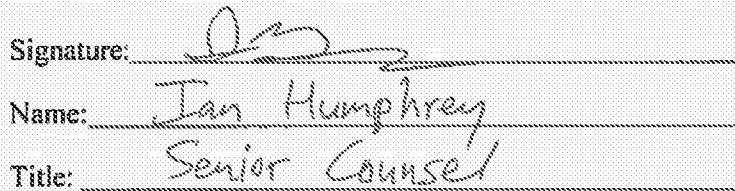 Signature:
Name: Ian Humphrey
Title: Senior Counsel